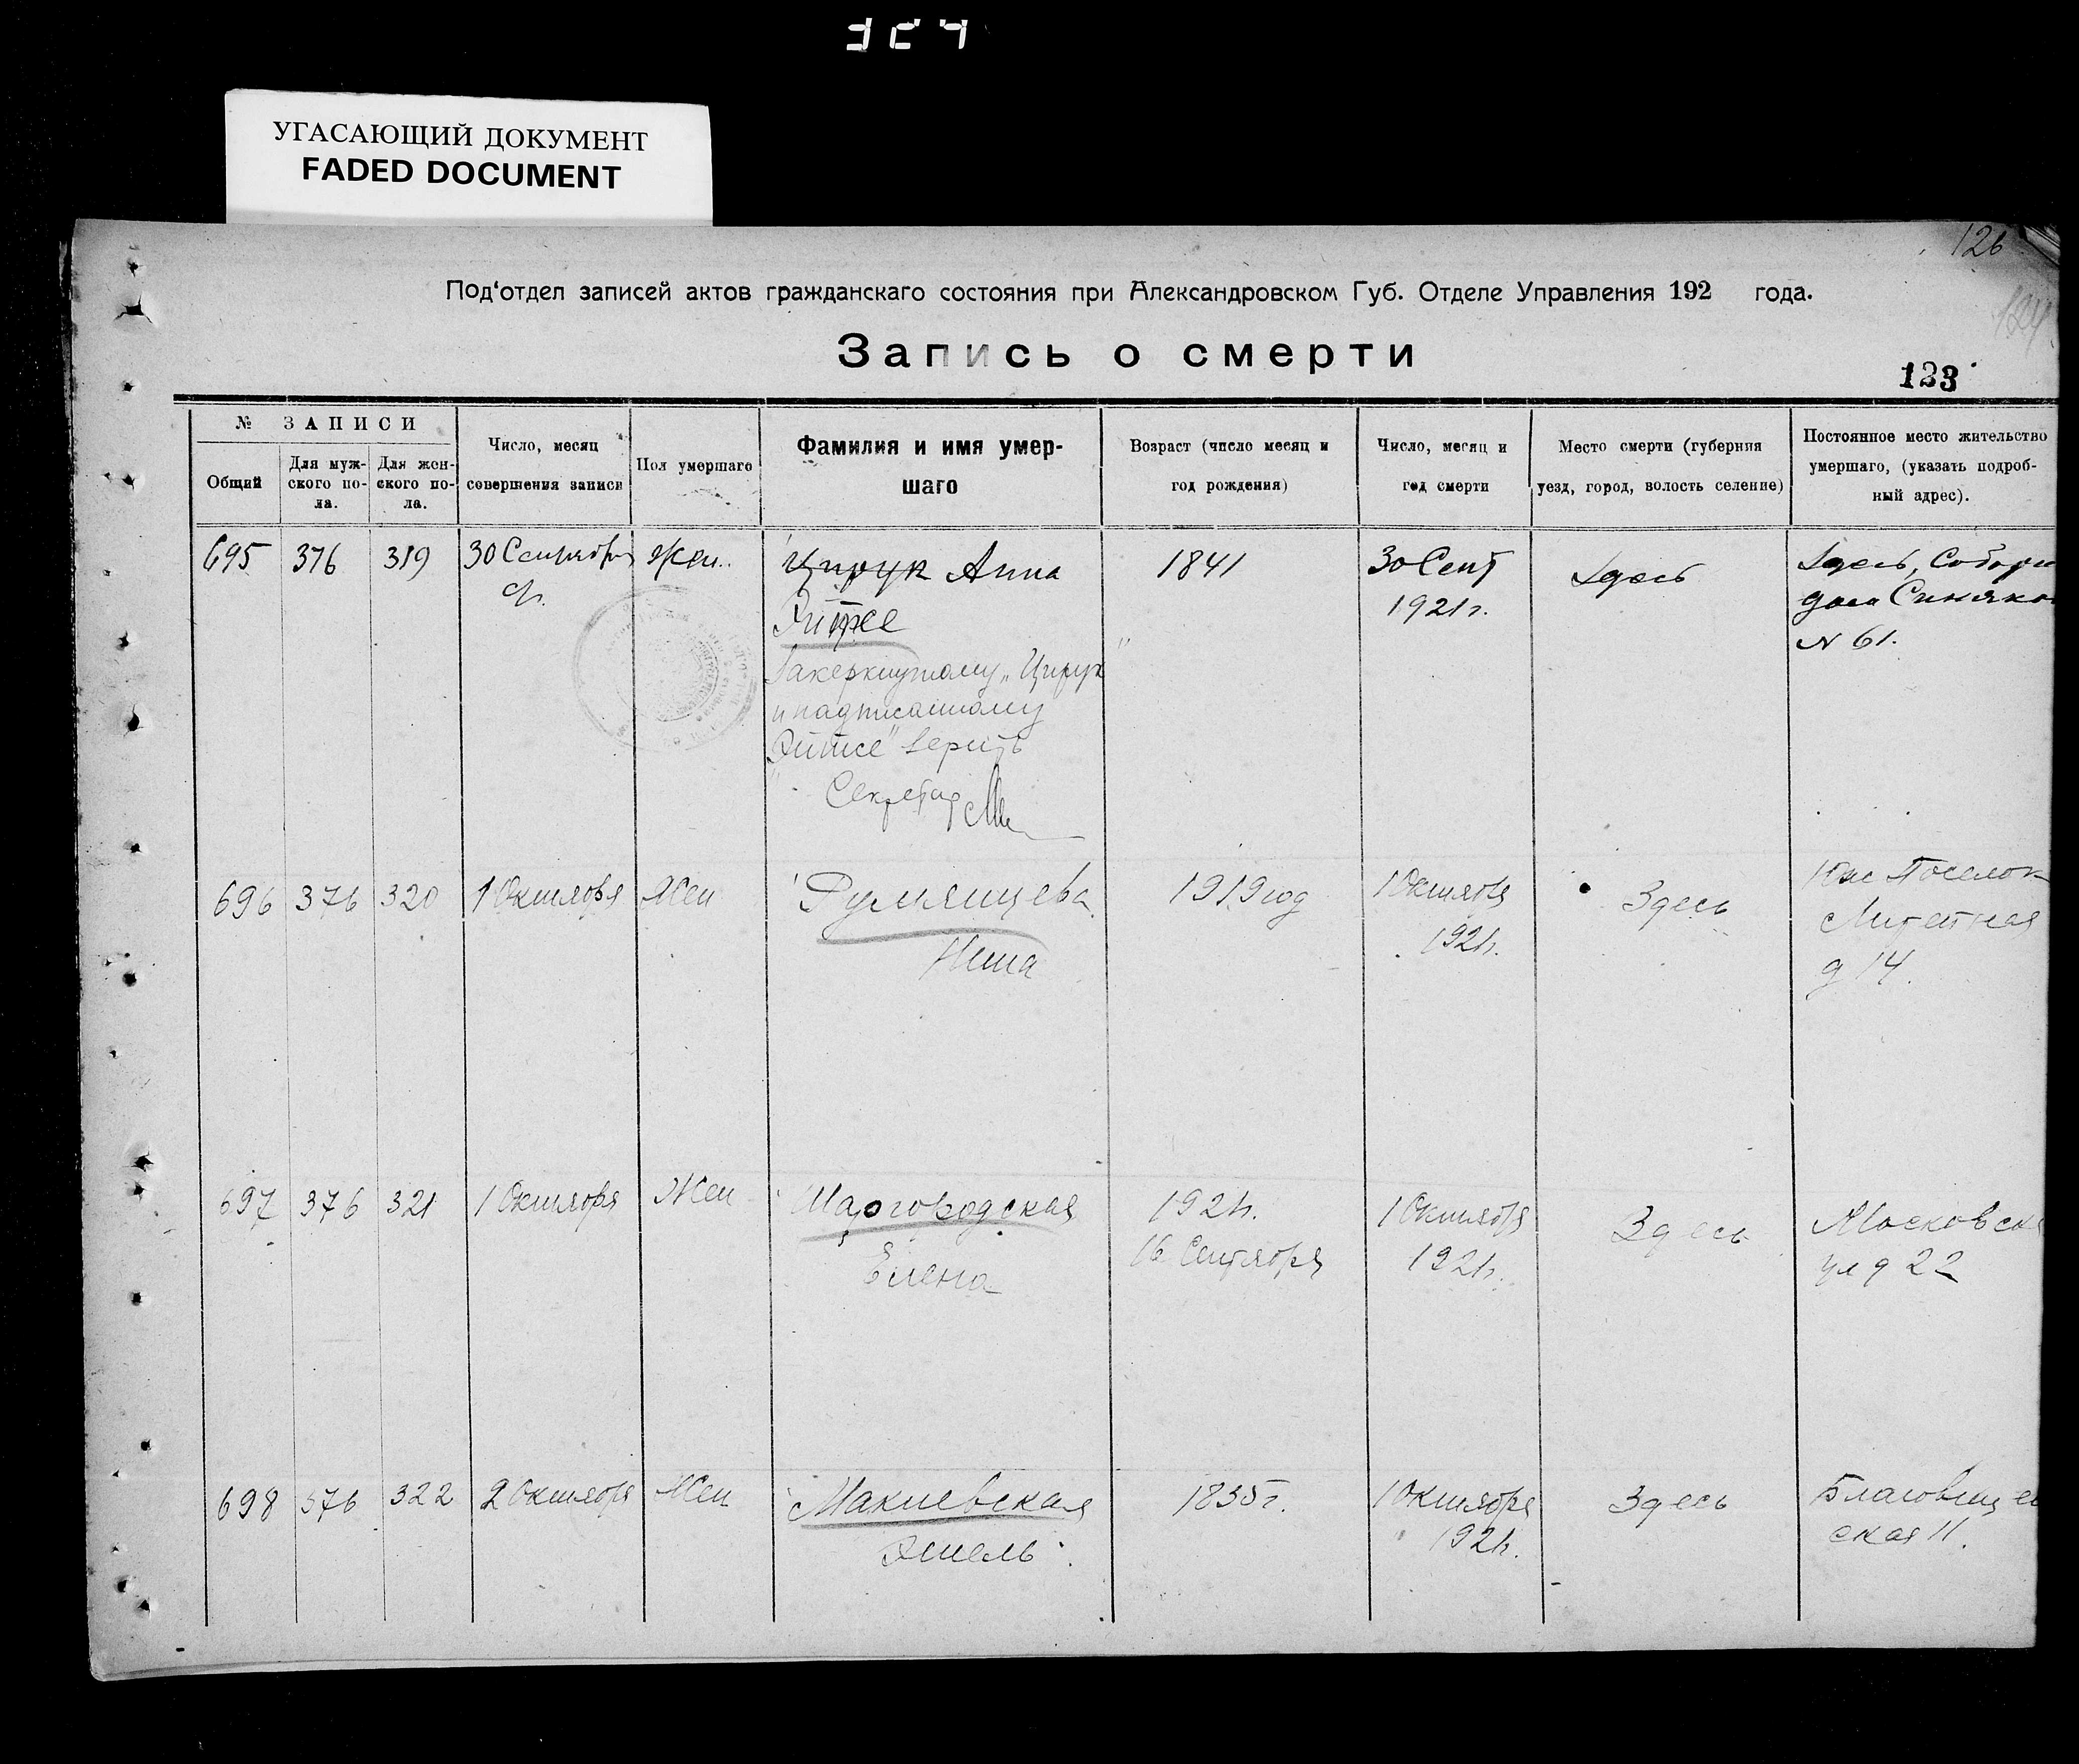 УГАСАЮЩИЙ ДОКУМЕНТ
FADED DOCUMENT
126
Под'отдел записей актов гражданскаго состояния при Александровском Губ. Отделе Управления 192 года.
124
Запись о смерти
123
№ ЗАПИСИ
Общий
Для муж-
ского по-
ла.
Для жен-
ского по-
ла.
Число, месяц
совершения записи
Пол умершаго
Фамилия и имя умер-
шаго
Возраст (число месяц и
год рождения)
Число, месяц и
год смерти
Место смерти (губерния
уезд, город, волость селение)
Постоянное место жительство
умершаго, (указать подроб-
ный адрес).
695 376 319 30 Сентября Жен. Цирук Анна 1841 30 Сент Здесь Здесь, Соборн
1921г. дом Синяко
N 61.
Закеркнутому „Цирук"
и надписанному
верить
Секретар
696 376 320 1 Октября Жен Румянцева 1919 год 1 Октября Здесь Поселок
Нина 1921г.
д 14.
697 376 321 1 Октября Жен Шарговодская 1921г. 1 Октября Здесь Московска
Елена 16 Сентября 1921г. ул д 22
698 376 322 2 Октября Жен Макиевская 1835г. 1 Октября Здесь Благовещен
1921г. ская 11.